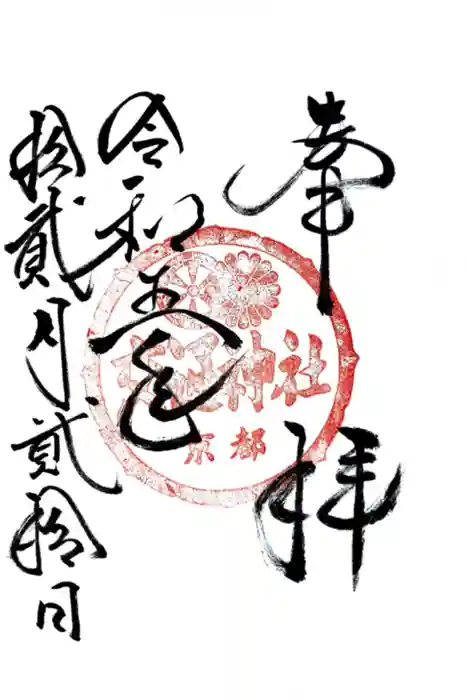 奉拝
令和五年
拾貳月貳拾日
神社
京都